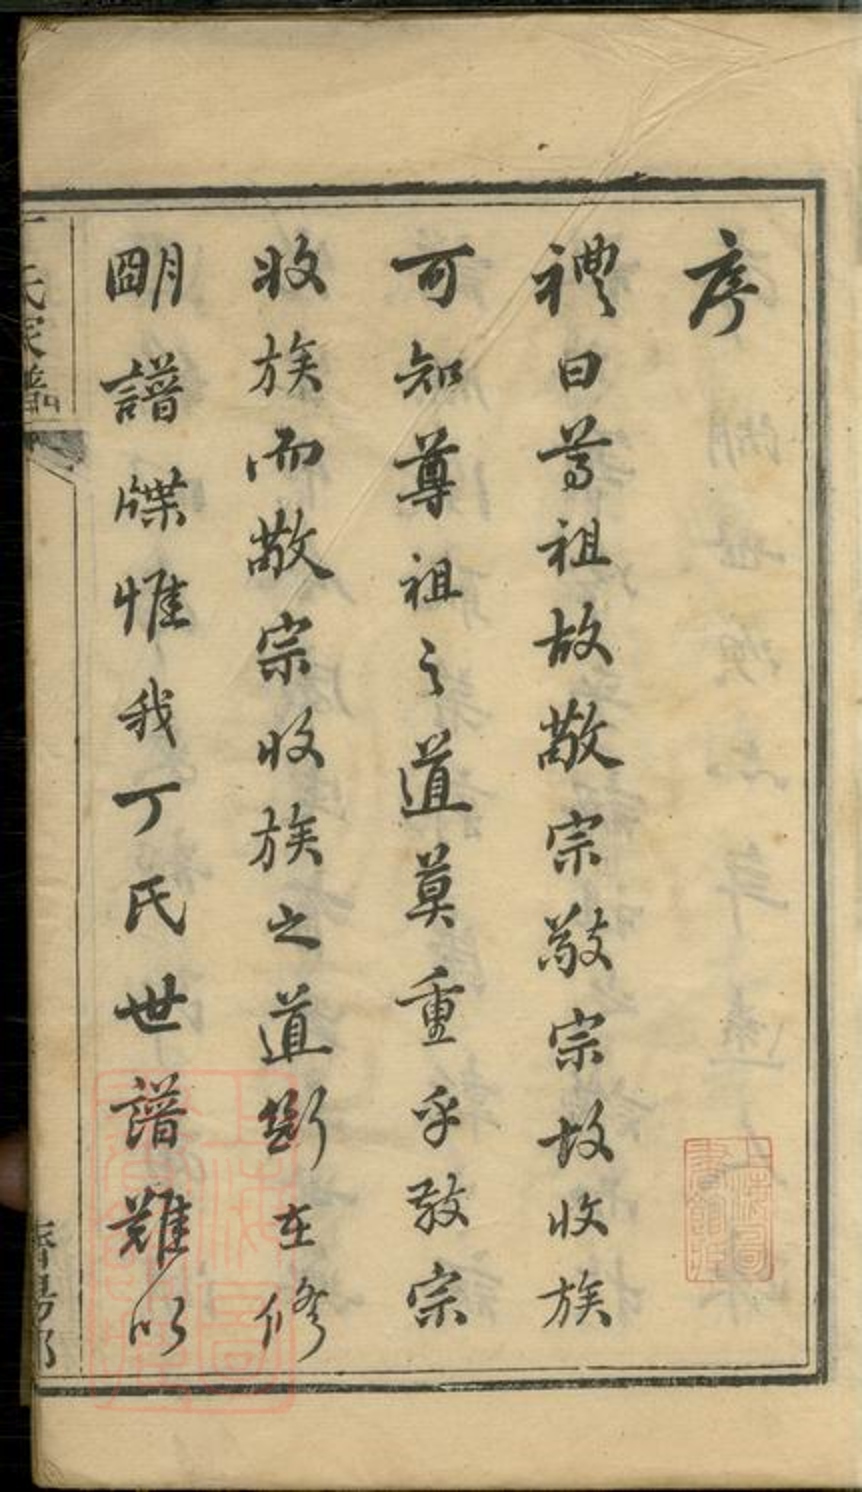 序
禮曰尊祖故敬宗敬宗故收族
可知尊祖之道莫重乎敬宗
收族而敬宗收族之道斷在修
朙譜牒惟我丁氏世譜難以
丁氏家譜
序
上海圖書館藏
上海圖書館藏